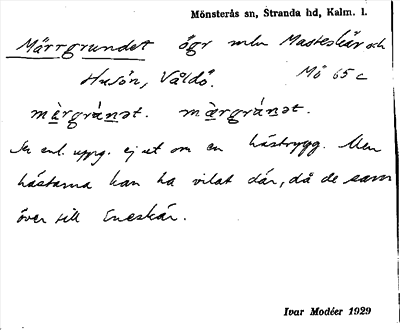 Mönsterås sn, Stranda hd, Kalm. l.
Märrgrundet ögr mln Masteskär och
Husön, Våldö. Mö 65 c
märgränət. märgránət.
Ser enl. uppg. ej ut om en hästrygg. Men
hästarna kan ha vilat där, då de sam
över till Eneskär.
Ivar Modéer 1929